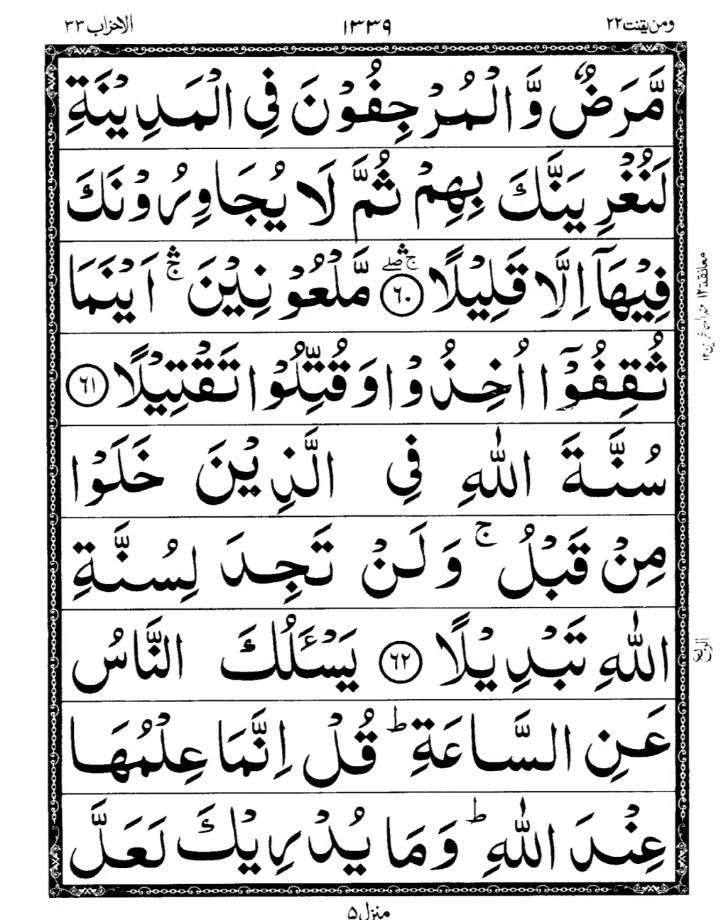 ومن يقنت ٢٢ ١٣٣٩ الاحزاب ٣٣
مَّرَضٌ وَّالْمُرْجِفُوْنَ فِی الْمَدِیْنَةِ
لَنُغْرِیَنَّكَ بِهِمْ ثُمَّ لَا یُجَاوِرُوْنَكَ
فِیْهَاۤ اِلَّا قَلِیْلًا ۛۚۖ ﴿٦٠﴾ مَّلْعُوْنِیْنَ ۛۚ اَیْنَمَا
ثُقِفُوْۤا اُخِذُوْا وَقُتِّلُوْا تَقْتِیْلًا ﴿٦١﴾
سُنَّةَ اللّٰهِ فِی الَّذِیْنَ خَلَوْا
مِنْ قَبْلُ ۚ وَلَنْ تَجِدَ لِسُنَّةِ
اللّٰهِ تَبْدِیْلًا ﴿٦٢﴾ یَسْـَٔلُكَ النَّاسُ
عَنِ السَّاعَةِ ؕ قُلْ اِنَّمَا عِلْمُهَا
عِنْدَ اللّٰهِ ؕ وَمَا یُدْرِیْكَ لَعَلَّ
معانقة ١٢
الربع
منزل ٥